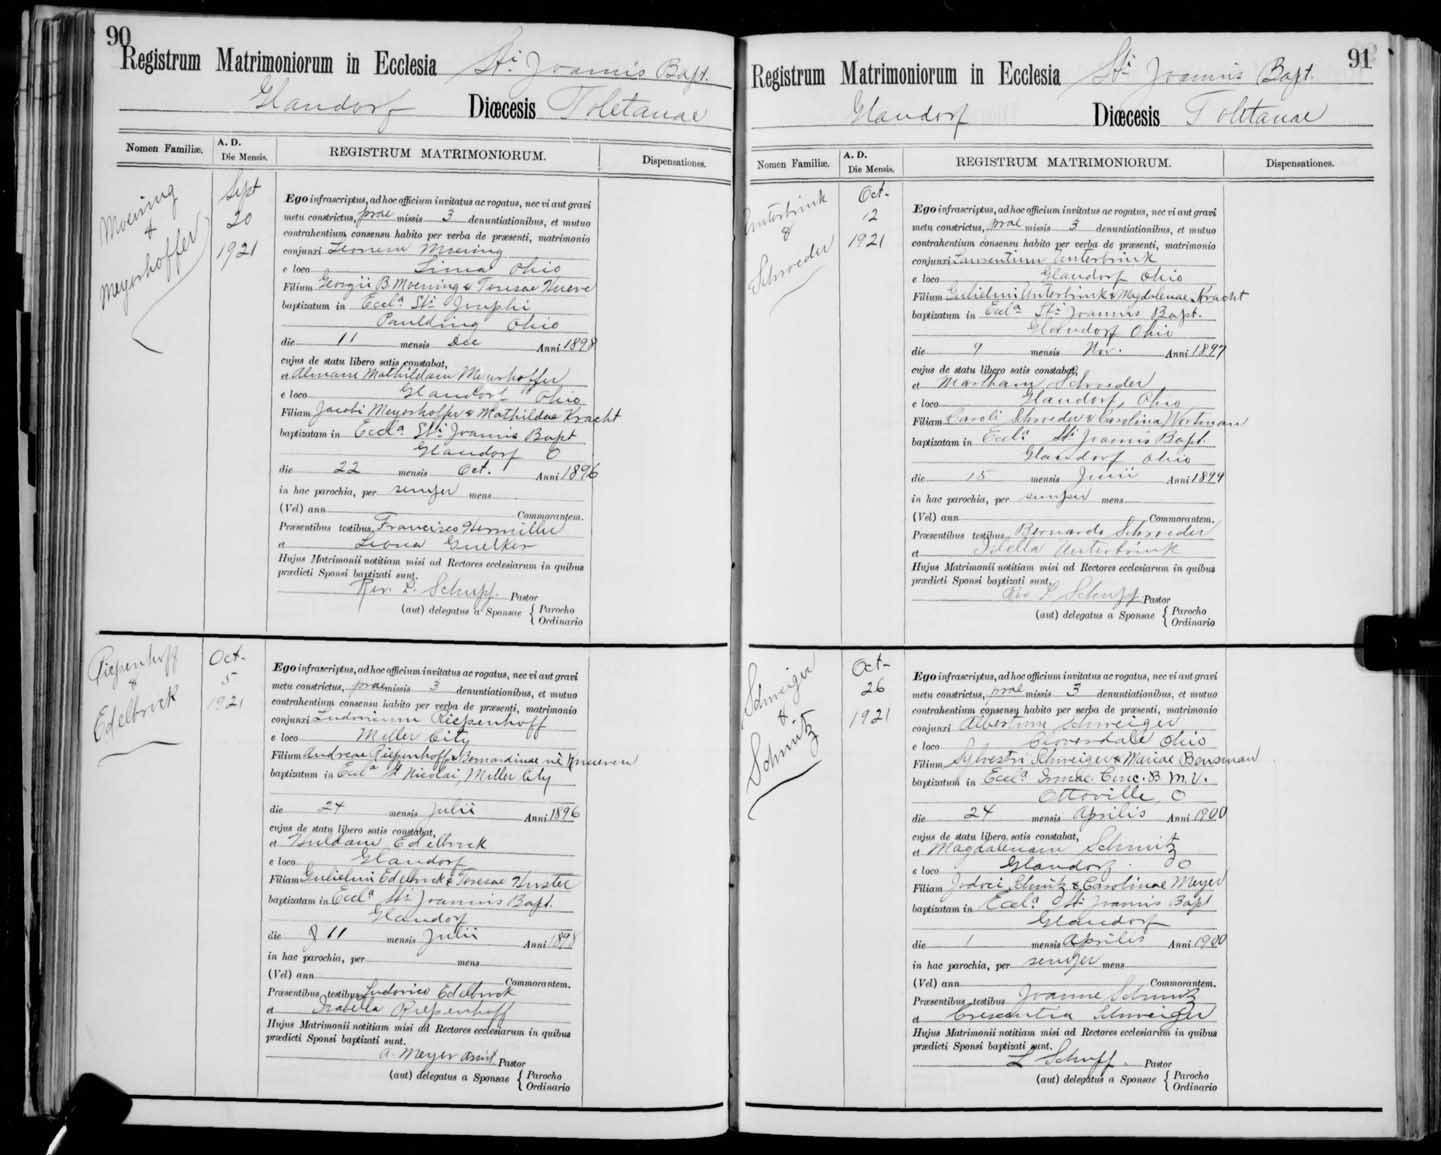 90
Registrum Matrimoniorum in Ecclesia Sti Joannis Bapt.
Glandorf Diœcesis Toletanae
Nomen Familiæ.
A. D.
Die Mensis.
REGISTRUM MATRIMONIORUM.
Dispensationes.
Moening
&
Meyerhoffer
Sept
20
1921
Ego infrascriptus, ad hoc officium invitatus ac rogatus, nec vi aut gravi
metu constrictus, prae missis 3 denuntiationibus, et mutuo
contrahentium consensu habito per verba de præsenti, matrimonio
conjunxi Moening
e loco Lima Ohio
Filium Georgii B. Moening & Teresae
baptizatum in Eccla Sti Josephi
Paulding Ohio
die 11 mensis Dec Anni 1898
cujus de statu libero satis constabat,
et Mathildam Meyerhoffer
e loco Glandorf Ohio
Filiam Jacobi Meyerhoffer & Mathildae Kracht
baptizatam in Eccla Sti Joannis Bapt
Glandorf O
die 22 mensis Oct. Anni 1896
in hac parochia, per semper mens
(Vel) ann Commorantem.
Præsentibus testibus Francisco
et Leona
Hujus Matrimonii notitiam misi ad Rectores ecclesiarum in quibus
prædicti Sponsi baptizati sunt.
Rev. L. Schupf. Pastor
(aut) delegatus a Sponsae { Parocho
Ordinario
Riepenhoff
&
Edelbrock
Oct-
5
1921
Ego infrascriptus, ad hoc officium invitatus ac rogatus, nec vi aut gravi
metu constrictus, prae missis 3 denuntiationibus, et mutuo
contrahentium consensu habito per verba de præsenti, matrimonio
conjunxi Riepenhoff
e loco Miller City
Filium Andreae Riepenhoff & Bernardinae Knueven
baptizatum in Eccla St Nicolai, Miller City
die 24 mensis Julii Anni 1896
cujus de statu libero satis constabat,
et Huldam Edelbrock
e loco Glandorf
Filiam Gulielmi Edelbrock & Teresae
baptizatam in Eccla Sti Joannis Bapt.
Glandorf
die 11 mensis Julii Anni 1898
in hac parochia, per mens
(Vel) ann Commorantem.
Præsentibus testibus Ludovico Edelbrock
et Isabella Riepenhoff
Hujus Matrimonii notitiam misi ad Rectores ecclesiarum in quibus
prædicti Sponsi baptizati sunt.
A. Meyer Pastor
(aut) delegatus a Sponsae { Parocho
Ordinario
91
Registrum Matrimoniorum in Ecclesia Sti Joannis Bapt.
Glandorf Diœcesis Toletanae
Nomen Familiæ.
A. D.
Die Mensis.
REGISTRUM MATRIMONIORUM.
Dispensationes.
Unterbrink
&
Schroeder
Oct-
12
1921
Ego infrascriptus, ad hoc officium invitatus ac rogatus, nec vi aut gravi
metu constrictus, prae missis 3 denuntiationibus, et mutuo
contrahentium consensu habito per verba de præsenti, matrimonio
conjunxi Laurentium Unterbrink
e loco Glandorf Ohio
Filium Gulielmi Unterbrink & Magdalenae Kracht
baptizatum in Eccla Sti Joannis Bapt.
Glandorf Ohio
die 9 mensis Nov. Anni 1897
cujus de statu libero satis constabat,
et Martham Schroeder
e loco Glandorf, Ohio
Filiam Caroli Schroeder & Carolina Wortman
baptizatam in Eccla Sti Joannis Bapt
Glandorf Ohio
die 15 mensis Junii Anni 1899
in hac parochia, per semper mens
(Vel) ann Commorantem.
Præsentibus testibus Bernardo Schroeder
et Unterbrink
Hujus Matrimonii notitiam misi ad Rectores ecclesiarum in quibus
prædicti Sponsi baptizati sunt.
Rev L Schupf Pastor
(aut) delegatus a Sponsae { Parocho
Ordinario
Schweiger
&
Schmitz
Oct-
26
1921
Ego infrascriptus, ad hoc officium invitatus ac rogatus, nec vi aut gravi
metu constrictus, prae missis 3 denuntiationibus, et mutuo
contrahentium consensu habito per verba de præsenti, matrimonio
conjunxi Albertum Schweiger
e loco Cloverdale Ohio
Filium Sylvestri Schweiger & Mariae
baptizatum in Eccla Immac. Conc. B. M. V.
Ottoville, O
die 24 mensis Aprilis Anni 1900
cujus de statu libero satis constabat,
et Magdalenam Schmitz
e loco Glandorf O
Filiam Jodoci Schmitz & Carolinae Meyer
baptizatam in Eccla Sti Joannis Bapt
Glandorf
die 1 mensis Aprilis Anni 1900
in hac parochia, per semper mens
(Vel) ann Commorantem.
Præsentibus testibus Joanne Schmitz
et Crescentia Schweiger
Hujus Matrimonii notitiam misi ad Rectores ecclesiarum in quibus
prædicti Sponsi baptizati sunt.
L Schupf. Pastor
(aut) delegatus a Sponsae { Parocho
Ordinario